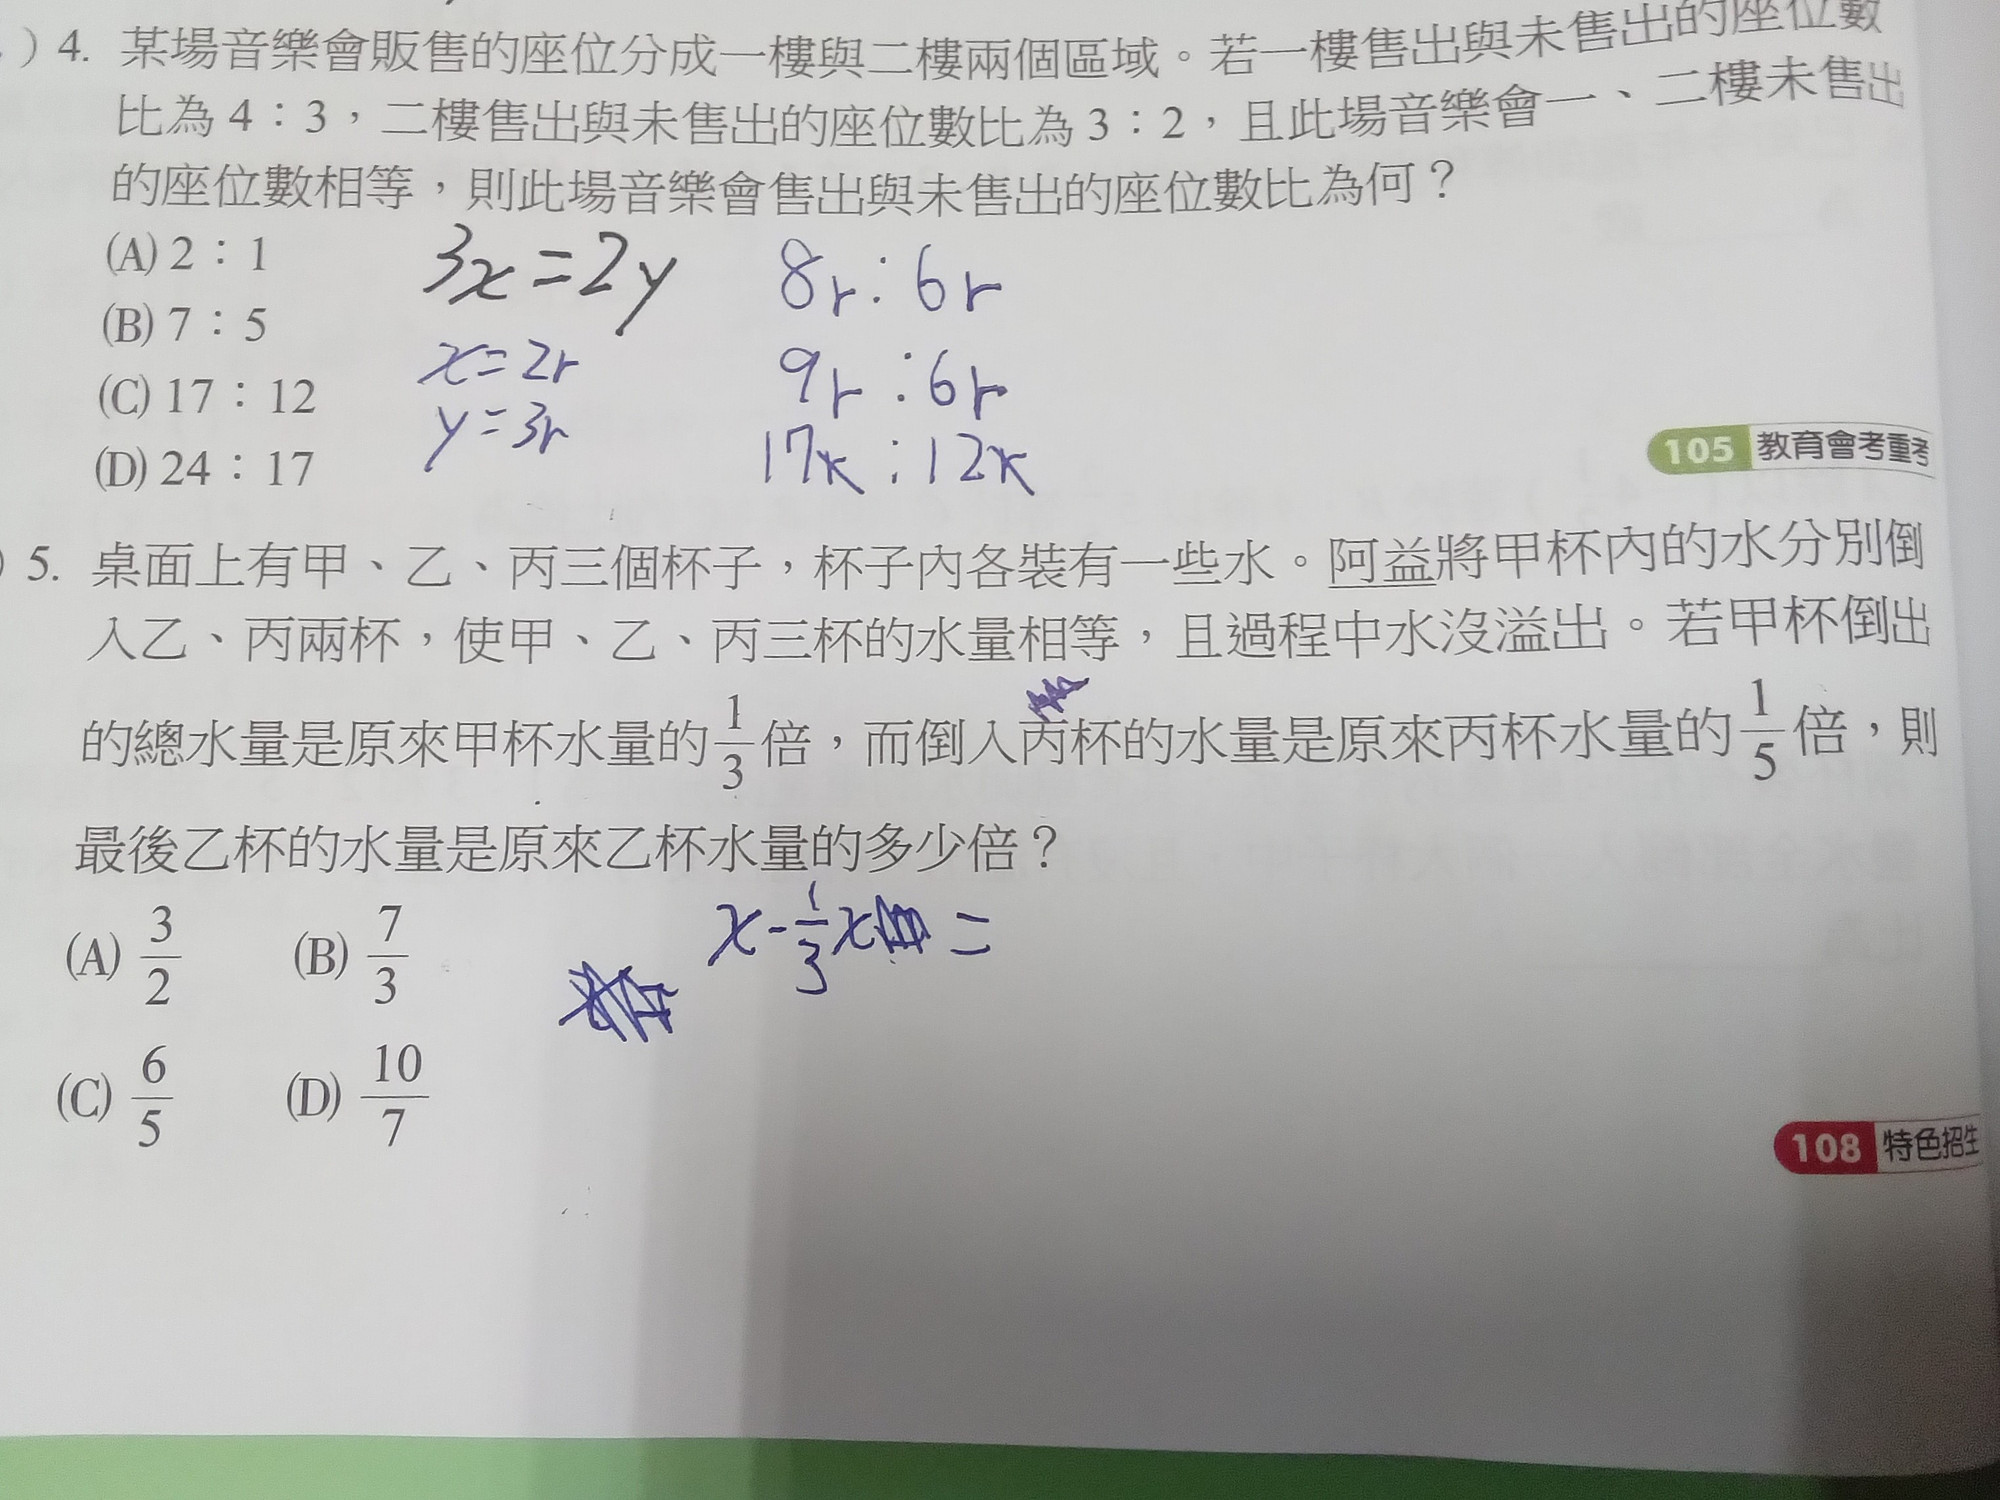 )4. 某場音樂會販售的座位分成一樓與二樓兩個區域。若一樓售出與未售出的座位數
比為 4：3，二樓售出與未售出的座位數比為 3：2，且此場音樂會一、二樓未售出
的座位數相等，則此場音樂會售出與未售出的座位數比為何？
(A) 2：1
(B) 7：5
(C) 17：12
(D) 24：17
3x=2y
x=2r
y=3r
8r:6r
9r:6r
17r:12r
105 教育會考重考
) 5. 桌面上有甲、乙、丙三個杯子，杯子內各裝有一些水。阿益將甲杯內的水分別倒
入乙、丙兩杯，使甲、乙、丙三杯的水量相等，且過程中水沒溢出。若甲杯倒出
的總水量是原來甲杯水量的 1/3 倍，而倒入丙杯的水量是原來丙杯水量的 1/5 倍，則
最後乙杯的水量是原來乙杯水量的多少倍？
x-1/3x =
(A) 3/2 (B) 7/3
(C) 6/5 (D) 10/7
108 特色招生